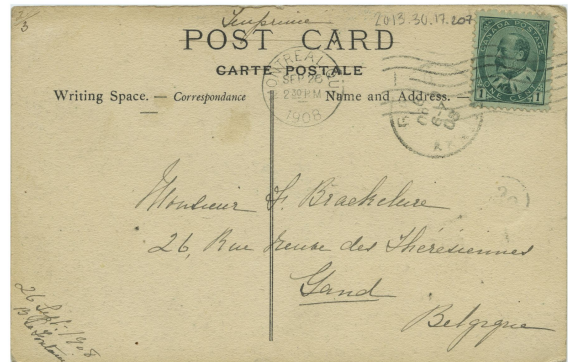 2/3
Imprimé
2013.30.17.207
POST CARD
CARTE POSTALE
Writing Space. — Correspondance
Name and Address. —
MONTREAL, QUE.
SEP 26
2 30 P.M
1908
CANADA POSTAGE
1 ONE CENT 1
Monsieur F. Braekeleire
26, Rue neuve des Thérésiennes
Gand
Belgique
26 Sept. 1908